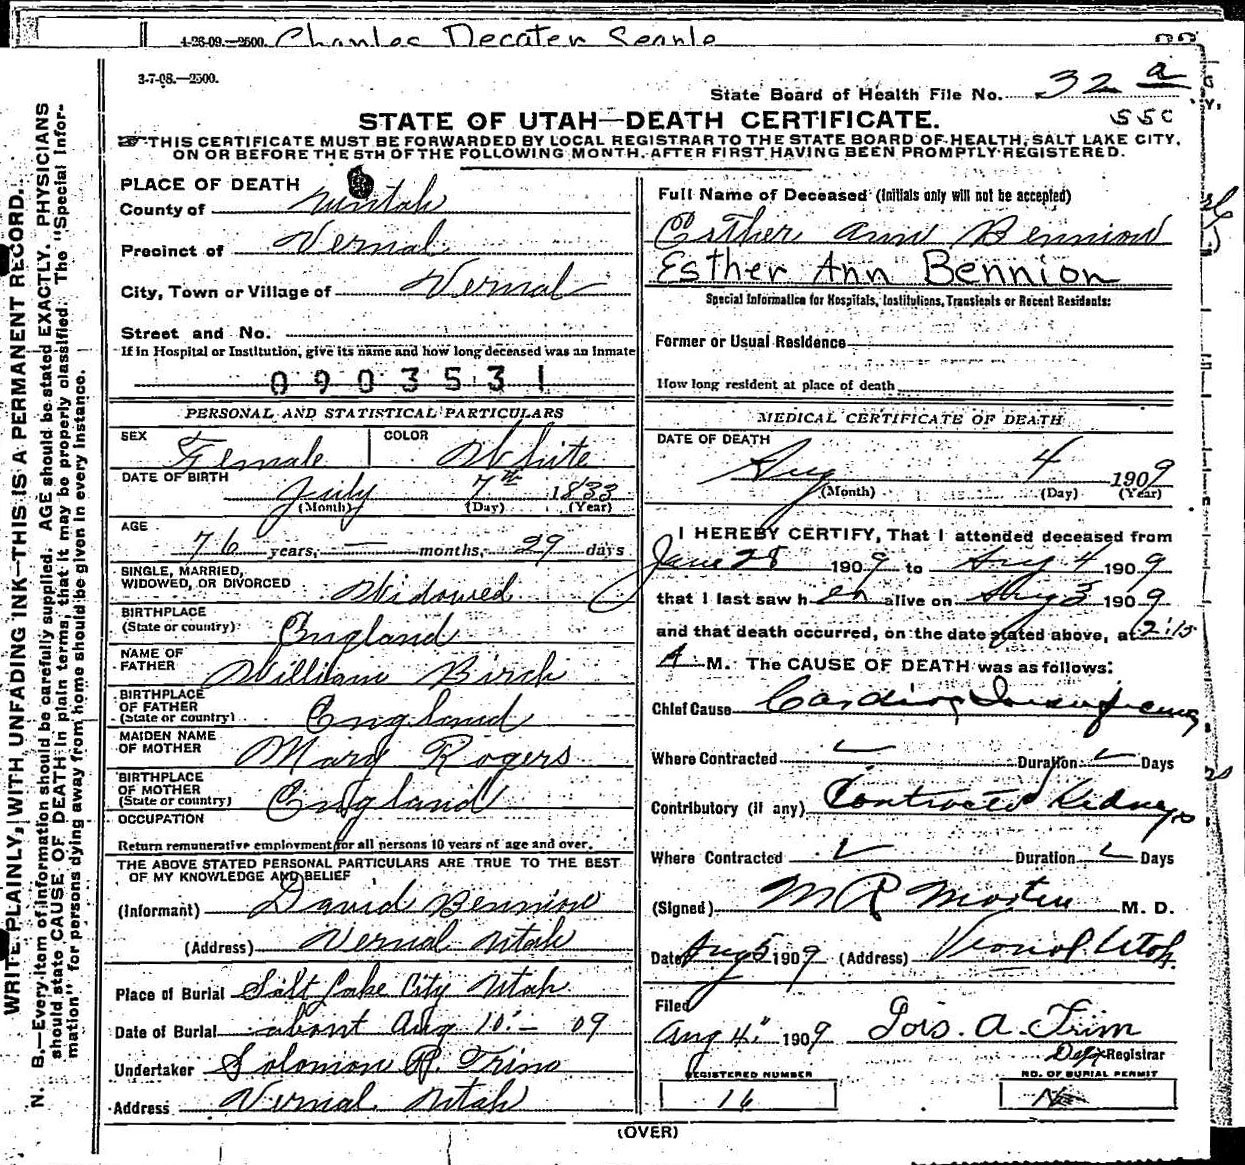 4-26-09.—2500. Charles Decater Searle
3-7-08.—2500.
State Board of Health File No. 32 a
550
STATE OF UTAH—DEATH CERTIFICATE.
THIS CERTIFICATE MUST BE FORWARDED BY LOCAL REGISTRAR TO THE STATE BOARD OF HEALTH, SALT LAKE CITY,
ON OR BEFORE THE 5TH OF THE FOLLOWING MONTH, AFTER FIRST HAVING BEEN PROMPTLY REGISTERED.
WRITE PLAINLY, WITH UNFADING INK—THIS IS A PERMANENT RECORD.
N. B.—Every item of information should be carefully supplied. AGE should be stated EXACTLY. PHYSICIANS
should state CAUSE OF DEATH in plain terms, that it may be properly classified. The "Special Infor-
mation" for persons dying away from home should be given in every instance.
PLACE OF DEATH
County of Uintah
Precinct of Vernal
City, Town or Village of Vernal
Street and No.
If in Hospital or Institution, give its name and how long deceased was an inmate
0903531
PERSONAL AND STATISTICAL PARTICULARS
SEX Female COLOR White
DATE OF BIRTH July 7th 1833
(Month) (Day) (Year)
AGE 76 years, — months, 29 days
SINGLE, MARRIED,
WIDOWED, OR DIVORCED Widowed
BIRTHPLACE
(State or country) England
NAME OF
FATHER William Birch
BIRTHPLACE
OF FATHER
(State or country) England
MAIDEN NAME
OF MOTHER Mary Rogers
BIRTHPLACE
OF MOTHER
(State or country) England
OCCUPATION
Return remunerative employment for all persons 10 years of age and over.
THE ABOVE STATED PERSONAL PARTICULARS ARE TRUE TO THE BEST
OF MY KNOWLEDGE AND BELIEF
(Informant) David Bennion
(Address) Vernal Utah
Place of Burial Salt Lake City Utah
Date of Burial about Aug 10 — 09
Undertaker Solomon P. Trim
Address Vernal Utah
Full Name of Deceased (Initials only will not be accepted)
Esther Ann Bennion
Esther Ann Bennion
Special Information for Hospitals, Institutions, Transients or Recent Residents:
Former or Usual Residence
How long resident at place of death
MEDICAL CERTIFICATE OF DEATH
DATE OF DEATH
Aug 4 1909
(Month) (Day) (Year)
I HEREBY CERTIFY, That I attended deceased from
June 28 1909 to Aug 4 1909
that I last saw her alive on Aug 3 1909
and that death occurred, on the date stated above, at 2:15
A M. The CAUSE OF DEATH was as follows:
Chief Cause Cardiac Insufficiency
Where Contracted Duration Days
Contributory (if any) Contracted Kidneys
Where Contracted Duration Days
(Signed) M. D.
Date Aug 5 1909 (Address) Vernal Utah.
Filed
Aug 4" 1909 A. Trim
Registrar
REGISTERED NUMBER NO. OF BURIAL PERMIT
16
(OVER)